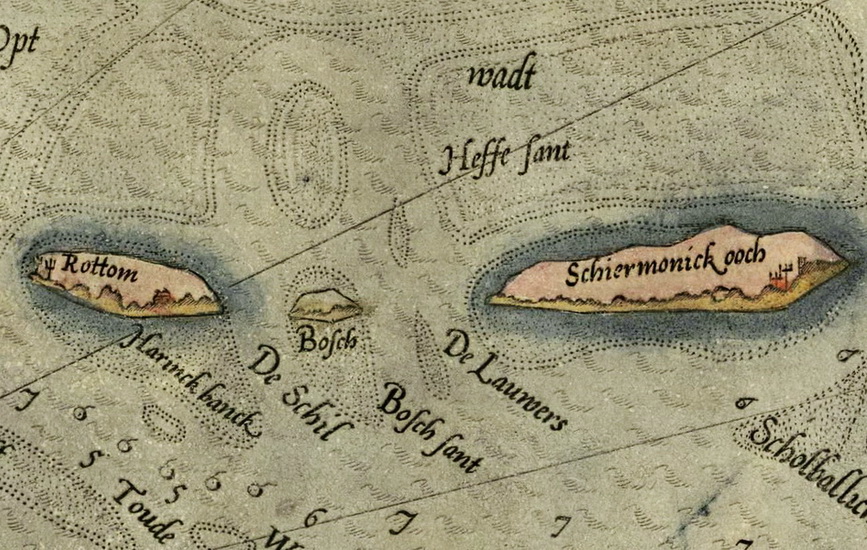 Opt
wadt
Heffe ſant
Rottom
Schiermonick ooch
Boſch
Harinck banck
De Schil
De Lauwers
Boſch ſant
7
6
6
6
6
6
5
5
Toude
6
7
7
6
7
7